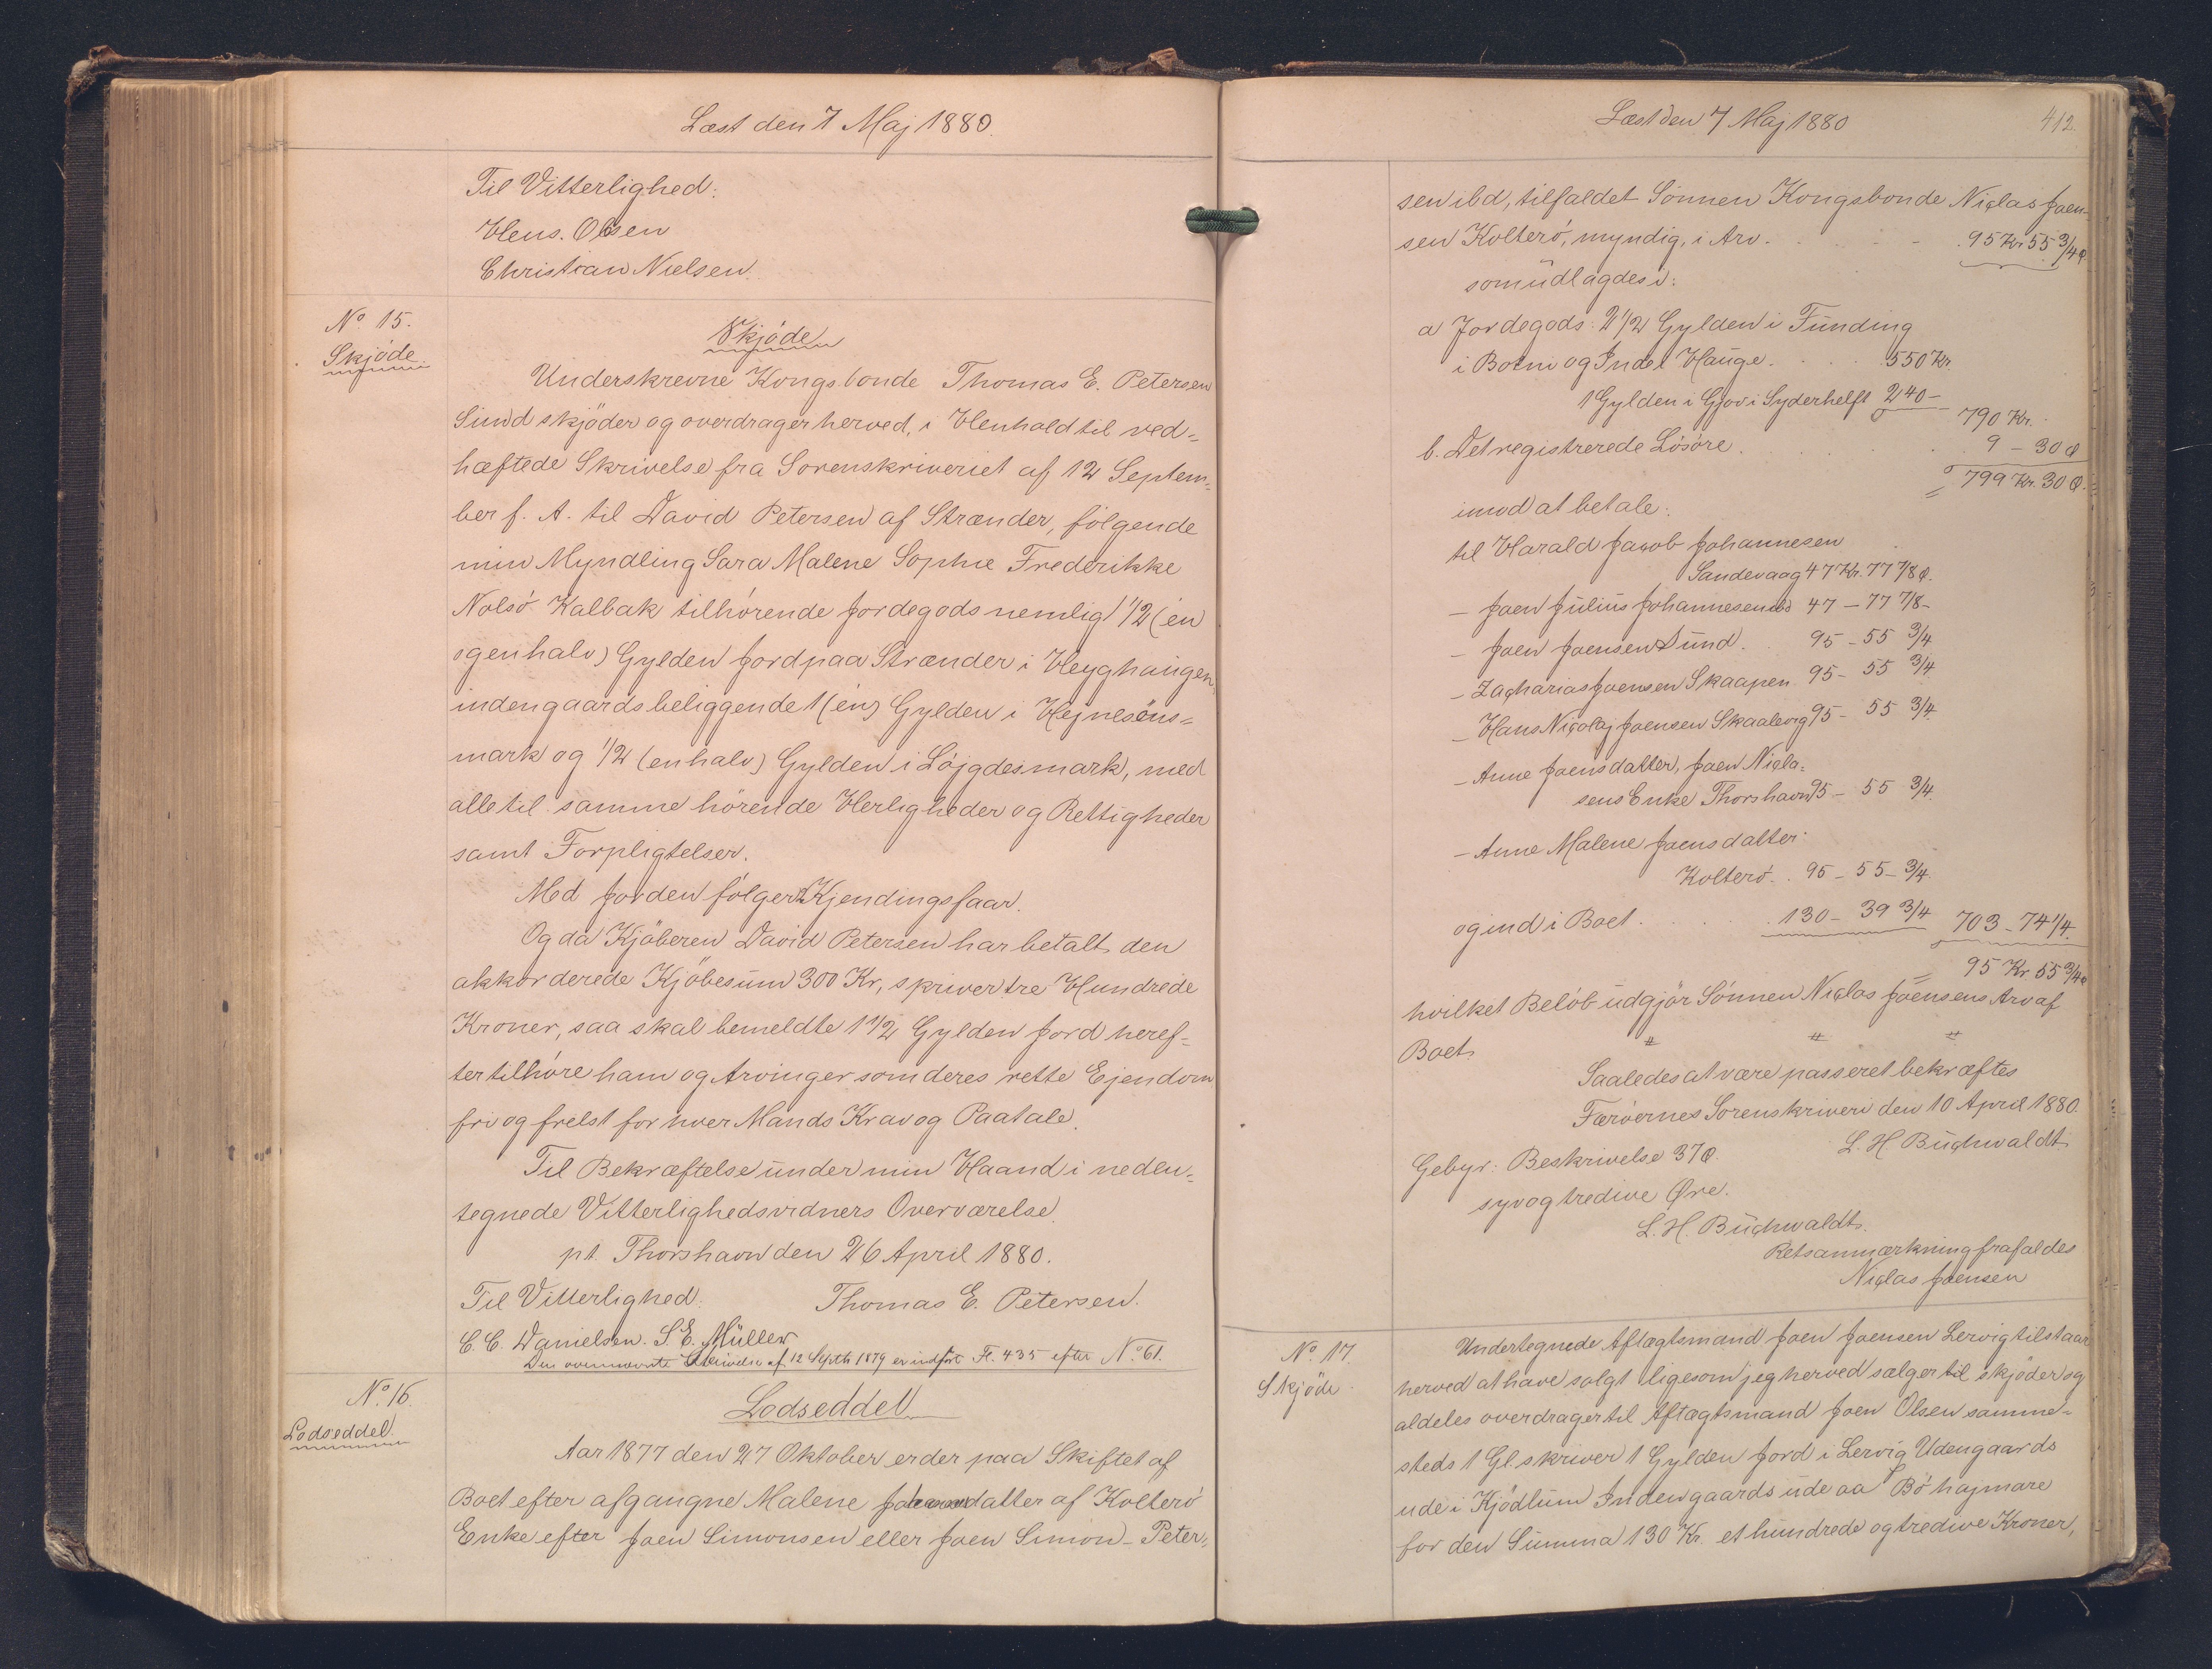 Læst den 7 Maj 1880.
Til Vitterlighed:
Hens. Olsen
Christian Nielsen.
No 15.
Skjøde.
Skjøde
Underskrevne Kongsbonde Thomas E. Petersen
Sund skjøder og overdrager herved, i Henhold til ved-
hæftede Skrivelse fra Sorenskriveriet af 12 Septem-
ber f. A. til David Petersen af Strænder, følgende
min Myndling Sara Malene Sophie Frederikke
Nolsø Kalbak tilhørende Jordegods nemlig 1 1/2 (en
og en halv) Gylden Jord paa Strænder i Heyghaugen
indengaards beliggende 1 (en) Gylden i Hejnesøns-
mark og 1/2 (en halv) Gylden i Løjgdesmark, med
alle til samme hørende Herligheder og Rettigheder
samt Forpligtelser.
Med Jorden følger 2 Kjendingsfaar.
Og da Kjøberen David Petersen har betalt den
akkorderede Kjøbesum 300 Kr, skriver tre Hundrede
Kroner, saa skal bemeldte 1 1/2 Gylden Jord heref-
ter tilhøre ham og Arvinger som deres rette Ejendom
fri og frelst for hver Mands Krav og Paatale.
Til Bekræftelse under min Haand i neden-
tegnede Vitterlighedsvidners Overværelse.
pt. Thorshavn den 26 April 1880.
Til Vitterlighed: Thomas E. Petersen.
C. C. Danielsen. S. E. Müller
Den ovennævnte Skrivelse af 12 Septb 1879 er indført Fl. 435 efter No 61.
No. 16.
Lodseddel.
Lodseddel
Aar 1877 den 27 Oktober er der paa Skiftet af
Boet efter afgangne Malene datter af Kolterø
Enke efter Joen Simonsen eller Joen Simon-Peter-
Læst den 7 Maj 1880
412.
sen ibd, tilfaldet Sønnen Kongsbonde Niclas Joen-
sen Kolterø, myndig, i Arv . . . 95 Kr 55 3/4 Ø
som udlagdes i:
a Jordegods: 2 1/2 Gylden i Funding
i Botni og Indel Hauge . . . 550 Kr.
1 Gylden i Gjov i Syderhelft 240 -
790 Kr.
b. Det registrerede Løsøre . . . 9 - 30 Ø
= 799 Kr. 30 Ø.
imod at betale:
til Harald Jacob Johannesen
Sandevaag 47 Kr. 77 7/8 Ø.
- Joen Julius Johannesen ibd 47 - 77 7/8 -
- Joen Joensen Sund . 95 - 55 3/4
- Zacharias Joensen Skaapen 95 - 55 3/4
- Hans Nicolaj Joensen Skaalevig 95 - 55 3/4
- Anne Joensdatter, Joen Nicla-
sens Enke Thorshavn 95 - 55 3/4.
- Anne Malene Joensdatter
Kolterø . . 95 - 55 - 3/4.
og ind i Boet . . . 130 - 39 3/4 703 - 74 1/4.
= 95 Kr 55 3/4 Ø
hvilket Beløb udgjør Sønnen Niclas Joensens Arv af
Boet.
Saaledes at være passeret bekræftes
Færøernes Sorenskriveri den 10 April 1880.
L. H. Buchwaldt.
Gebyr: Beskrivelse 37 Ø.
syv og tredive Øre.
L. H. Buchwaldt.
Retsanmærkning frafaldes
Niclas Joensen
No. 17.
Skjøde.
Undertegnede Aftægtsmand Joen Joensen Lervig tilstaar
herved at have solgt ligesom jeg herved sælger til skjøder og
aldeles overdrager til Aftægtsmand Joen Olsen samme-
steds 1 Gl. skriver 1 Gylden Jord i Lervig Udengaards
ude i Kjødlum Indengaards ude aa Bø hajmare
for den Summa 130 Kr. et hundrede og tredive Kroner,